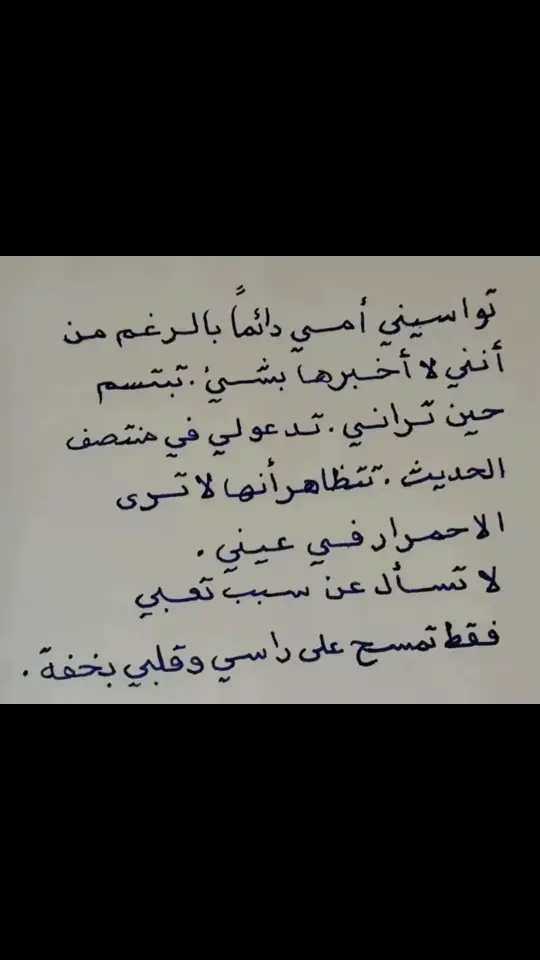 تواسيني أمي دائماً بالرغم من
أنني لا أخبرها بشيئ . تبتسم
حين تراني . تدعولي في منتصف
الحديث . تتظاهر أنها لا ترى
الاحمرار في عيني .
لا تسأل عن سبب تعبي
فقط تمسح على راسي وقلبي بخفة .